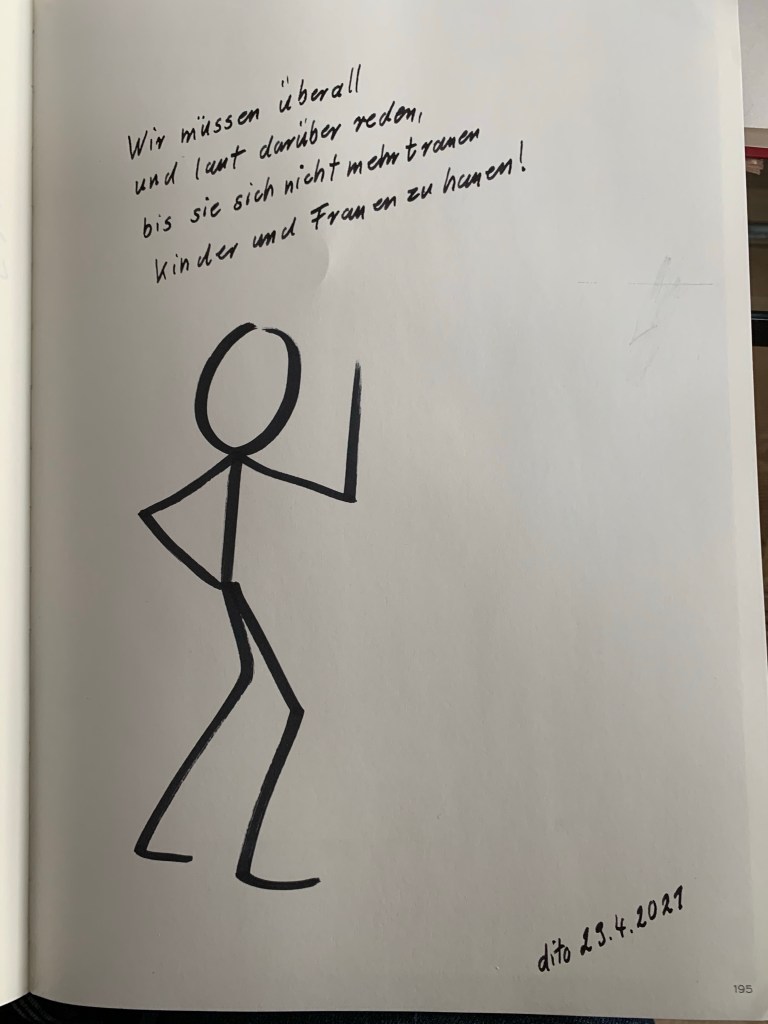 Wir müssen überall
und laut darüber reden,
bis sie sich nicht mehr trauen
Kinder und Frauen zu hauen!
dito 29.4.2021
195